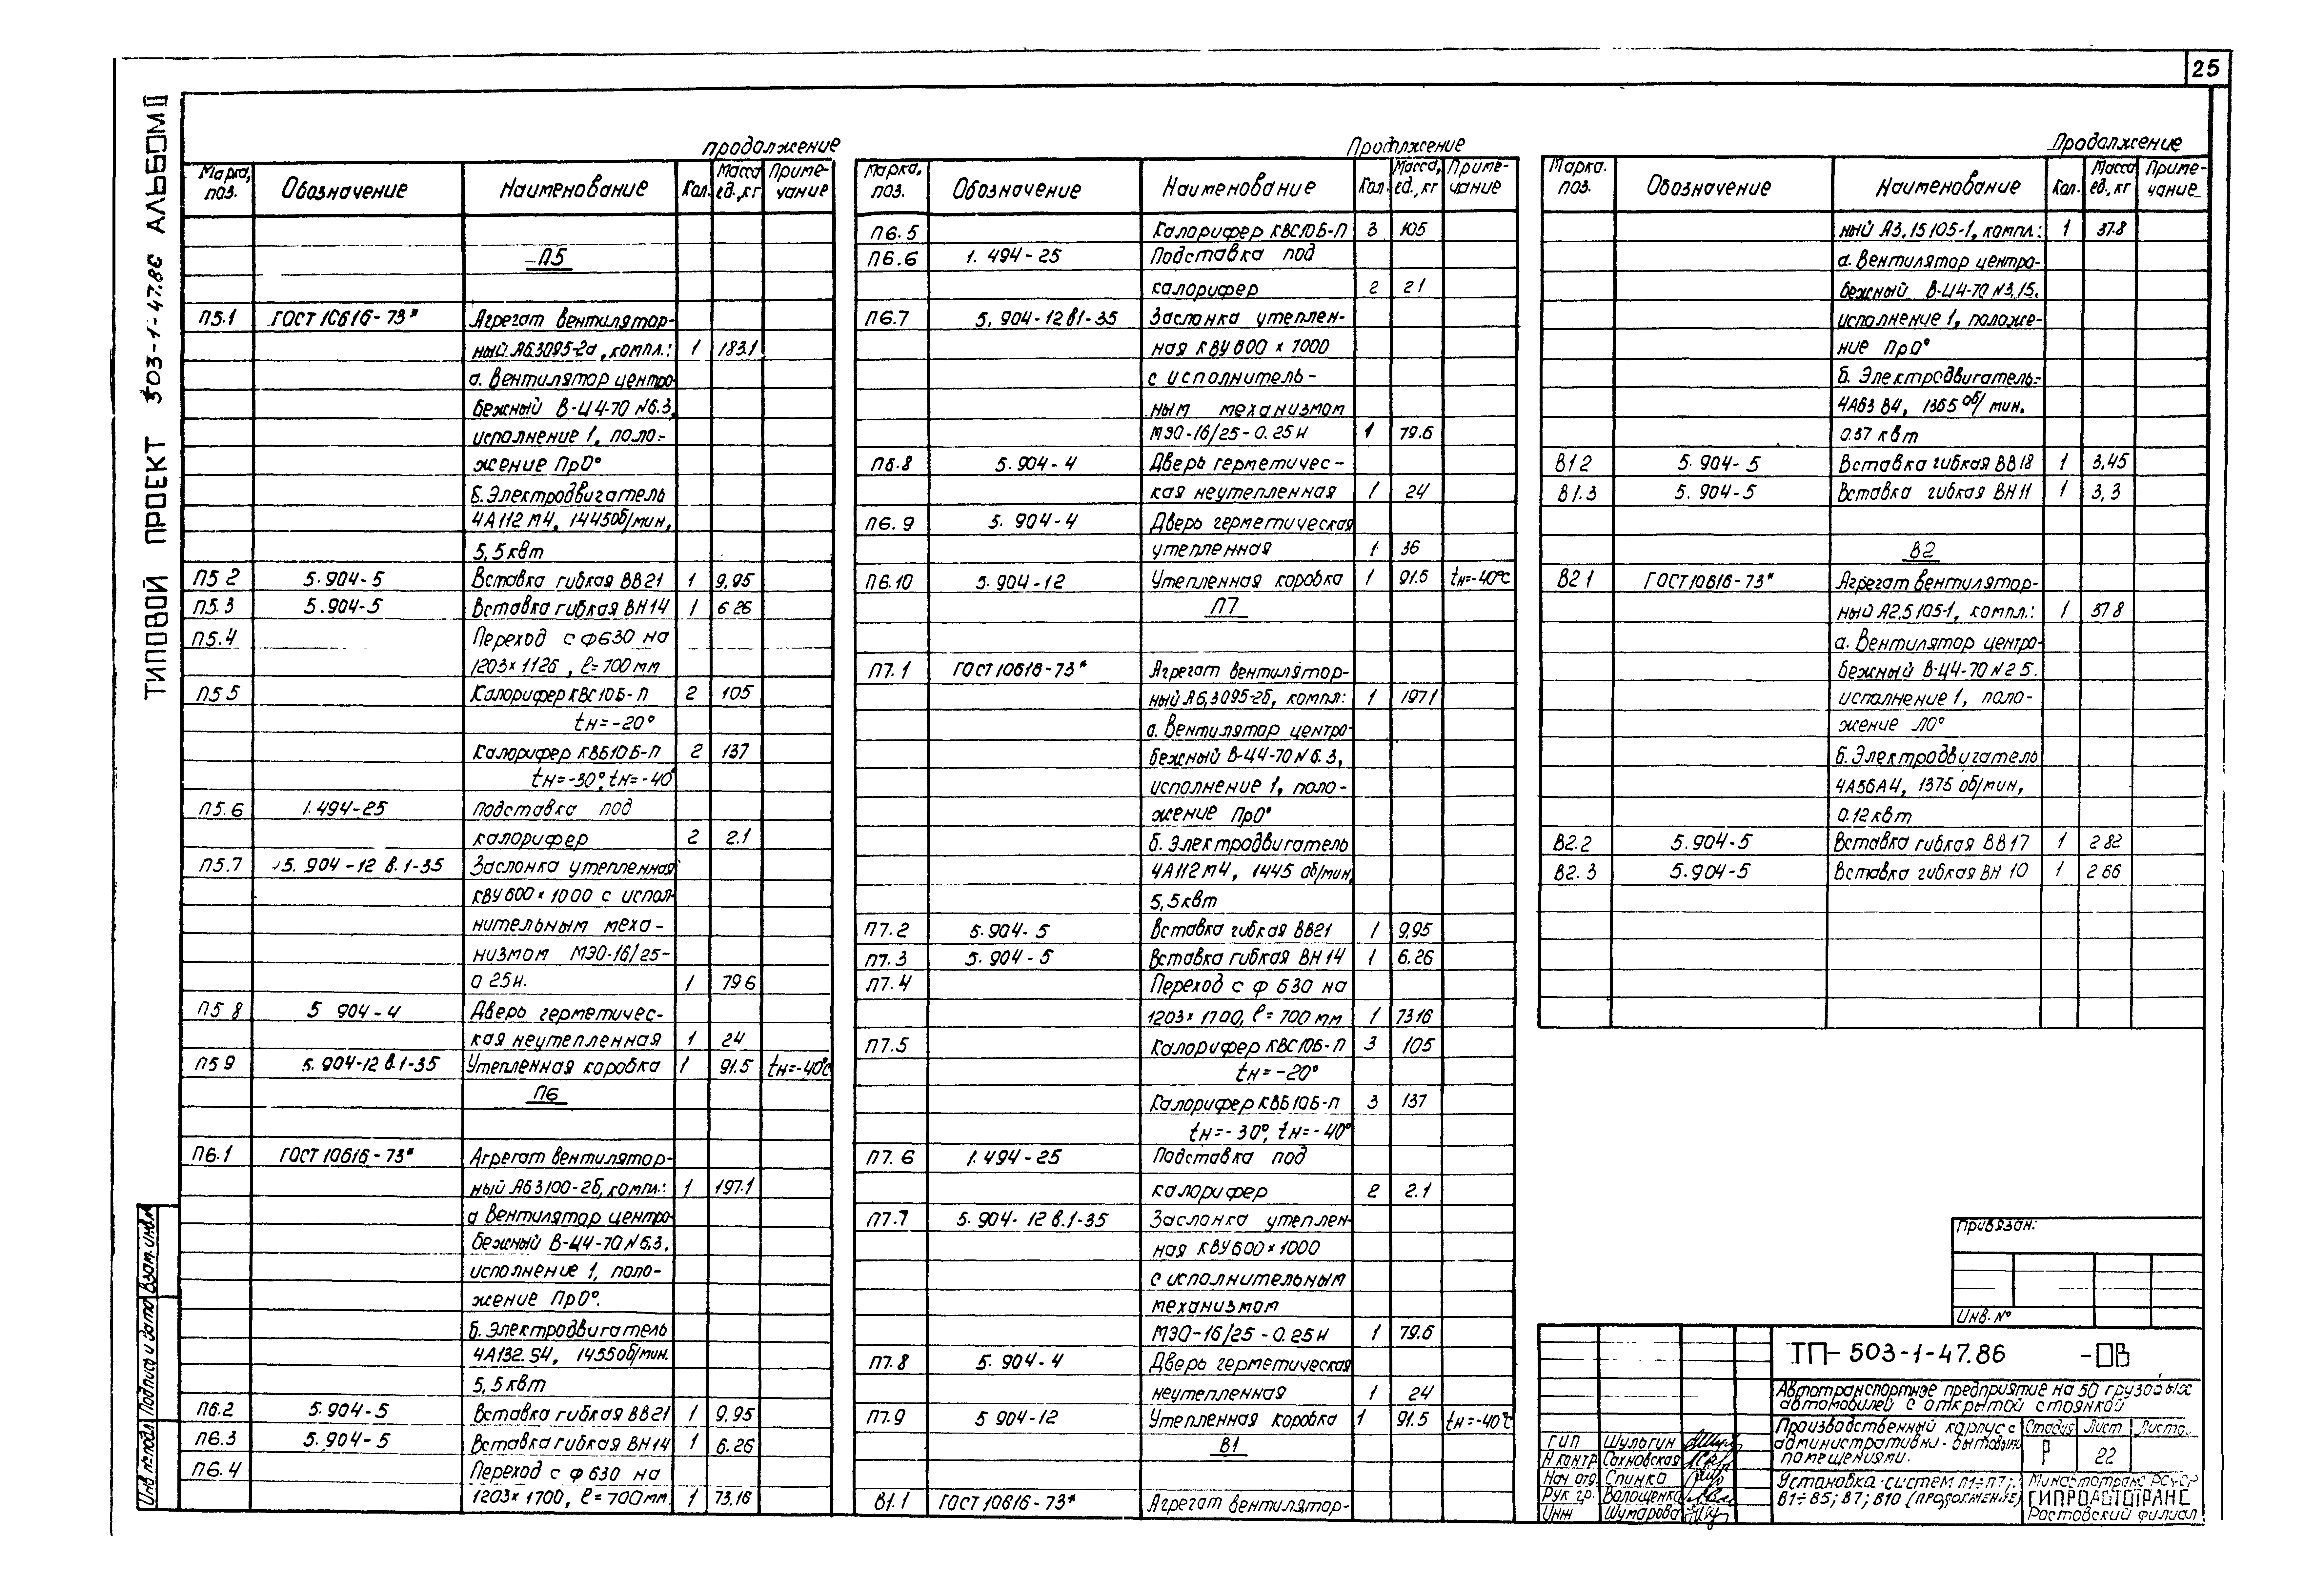 25
ТИПОВОЙ ПРОЕКТ 503-1-47.86 АЛЬБОМ II
продолжение
Марка, поз. Обозначение Наименование Кол. Масса ед., кг Примечание
П5
П5.1 ГОСТ 10616-73* Агрегат вентилятор-
ный А6.3095-2а, компл.: 1 183.1
а. Вентилятор центро-
бежный В-Ц4-70 N6.3,
исполнение 1, поло-
жение Пр0°
б. Электродвигатель
4А112М4, 1445об/мин,
5,5квт
П5 2 5.904-5 Вставка гибкая ВВ21 1 9,95
П5.3 5.904-5 Вставка гибкая ВН14 1 6 26
П5.4 Переход с ф630 на
1203х1126, ℓ=700мм
П5 5 Калорифер КВС10Б-П 2 105
tн=-20°
Калорифер КВБ10Б-П 2 137
tн=-30°, tн=-40°
П5.6 1.494-25 Подставка под
калорифер 2 2.1
П5.7 5.904-12 в.1-35 Заслонка утепленная
КВУ600х1000 с испол-
нительным меха-
низмом МЭО-16/25-
0 25и. 1 79 6
П5 8 5 904-4 Дверь герметичес-
кая неутепленная 1 24
П5 9 5.904-12 в.1-35 Утепленная коробка 1 91.5 tн=-40°с
П6
П6.1 ГОСТ 10616-73* Агрегат вентилятор-
ный А6 3100-2б, компл.: 1 197.1
а Вентилятор центро-
бежный В-Ц4-70 N6.3,
исполнение 1, поло-
жение Пр0°.
б. Электродвигатель
4А132.S4, 1455об/мин.
5,5квт
П6.2 5.904-5 Вставка гибкая ВВ21 1 9,95
П6.3 5.904-5 Вставка гибкая ВН14 1 6.26
П6.4 Переход с ф630 на
1203х1700, ℓ=700мм 1 73,16
Продолжение
Марка, поз. Обозначение Наименование Кол. Масса, ед., кг Примечание
П6.5 Калорифер КВС10Б-П 3 105
П6.6 1.494-25 Подставка под
калорифер 2 21
П6.7 5.904-12 в1-35 Заслонка утеплен-
ная КВУ600х1000
с исполнитель-
ным механизмом
МЭО-16/25-0.25и 1 79.6
П6.8 5.904-4 Дверь герметичес-
кая неутепленная 1 24
П6.9 5.904-4 Дверь герметическая
утепленная 1 36
П6.10 5.904-12 Утепленная коробка 1 91.5 tн=-40°с
П7
П7.1 ГОСТ10616-73* Агрегат вентилятор-
ный А6,3095-2б, компл: 1 1971
а. Вентилятор центро-
бежный В-Ц4-70 N6.3,
исполнение 1, поло-
жение Пр0°
б. Электродвигатель
4А112М4, 1445 об/мин,
5,5квт
П7.2 5.904-5 Вставка гибкая ВВ21 1 9,95
П7.3 5.904-5 Вставка гибкая ВН14 1 6.26
П7.4 Переход с ф 630 на
1203х1700, ℓ=700мм 1 7316
П7.5 Калорифер КВС10Б-П 3 105
tн=-20°
Калорифер КВБ10Б-П 3 137
tн=-30°, tн=-40°
П7.6 1.494-25 Подставка под
калорифер 2 2.1
П7.7 5.904-12 в.1-35 Заслонка утеплен-
ная КВУ600х1000
с исполнительным
механизмом
МЭО-16/25-0.25и 1 79.6
П7.8 5.904-4 Дверь герметическая
неутепленная 1 24
П7.9 5 904-12 Утепленная коробка 1 91.5 tн=-40°с
В1
В1.1 ГОСТ 10616-73* Агрегат вентилятор-
Продолжение
Марка. поз. Обозначение Наименование Кол. Масса ед., кг Примечание
ный А3,15105-1, компл.: 1 37.8
а. Вентилятор центро-
бежный В-Ц4-70 N3,15.
исполнение 1, положе-
ние Пр0°
б. Электродвигатель-
4А63 В4, 1365 об/мин.
0.37 квт
В1 2 5.904-5 Вставка гибкая ВВ18 1 3,45
В1.3 5.904-5 Вставка гибкая ВН11 1 3,3
В2
В2 1 ГОСТ10616-73* Агрегат вентилятор-
ный А2,5105-1, компл.: 1 37 8
а. Вентилятор центро-
бежный В-Ц4-70 N2 5.
исполнение 1, поло-
жение Л0°
б. Электродвигатель
4А56А4, 1375 об/мин,
0.12квт
В2.2 5.904-5 Вставка гибкая ВВ17 1 2 82
В2.3 5.904-5 Вставка гибкая ВН 10 1 2 66
Привязан:
Инв. N°
ТП-503-1-47.86 -ОВ
Автотранспортное предприятие на 50 грузовых
автомобилей с открытой стоянкой
Производственный корпус с
административно-бытовыми
помещениями.
Стадия Лист Листо..
Р 22
Установка систем П1÷П7;
В1÷В5; В7; В10 (продолжение)
Минавтотранс РСФСР
ГИПРОАВТОТРАНС
Ростовский филиал
ГИП Шульгин
Н контр Сахновская
Нач отд. Спинка
Рук гр. Волощенко
Инж Шумарова
Инв № подл. Подпись и дата Взам. инв.№